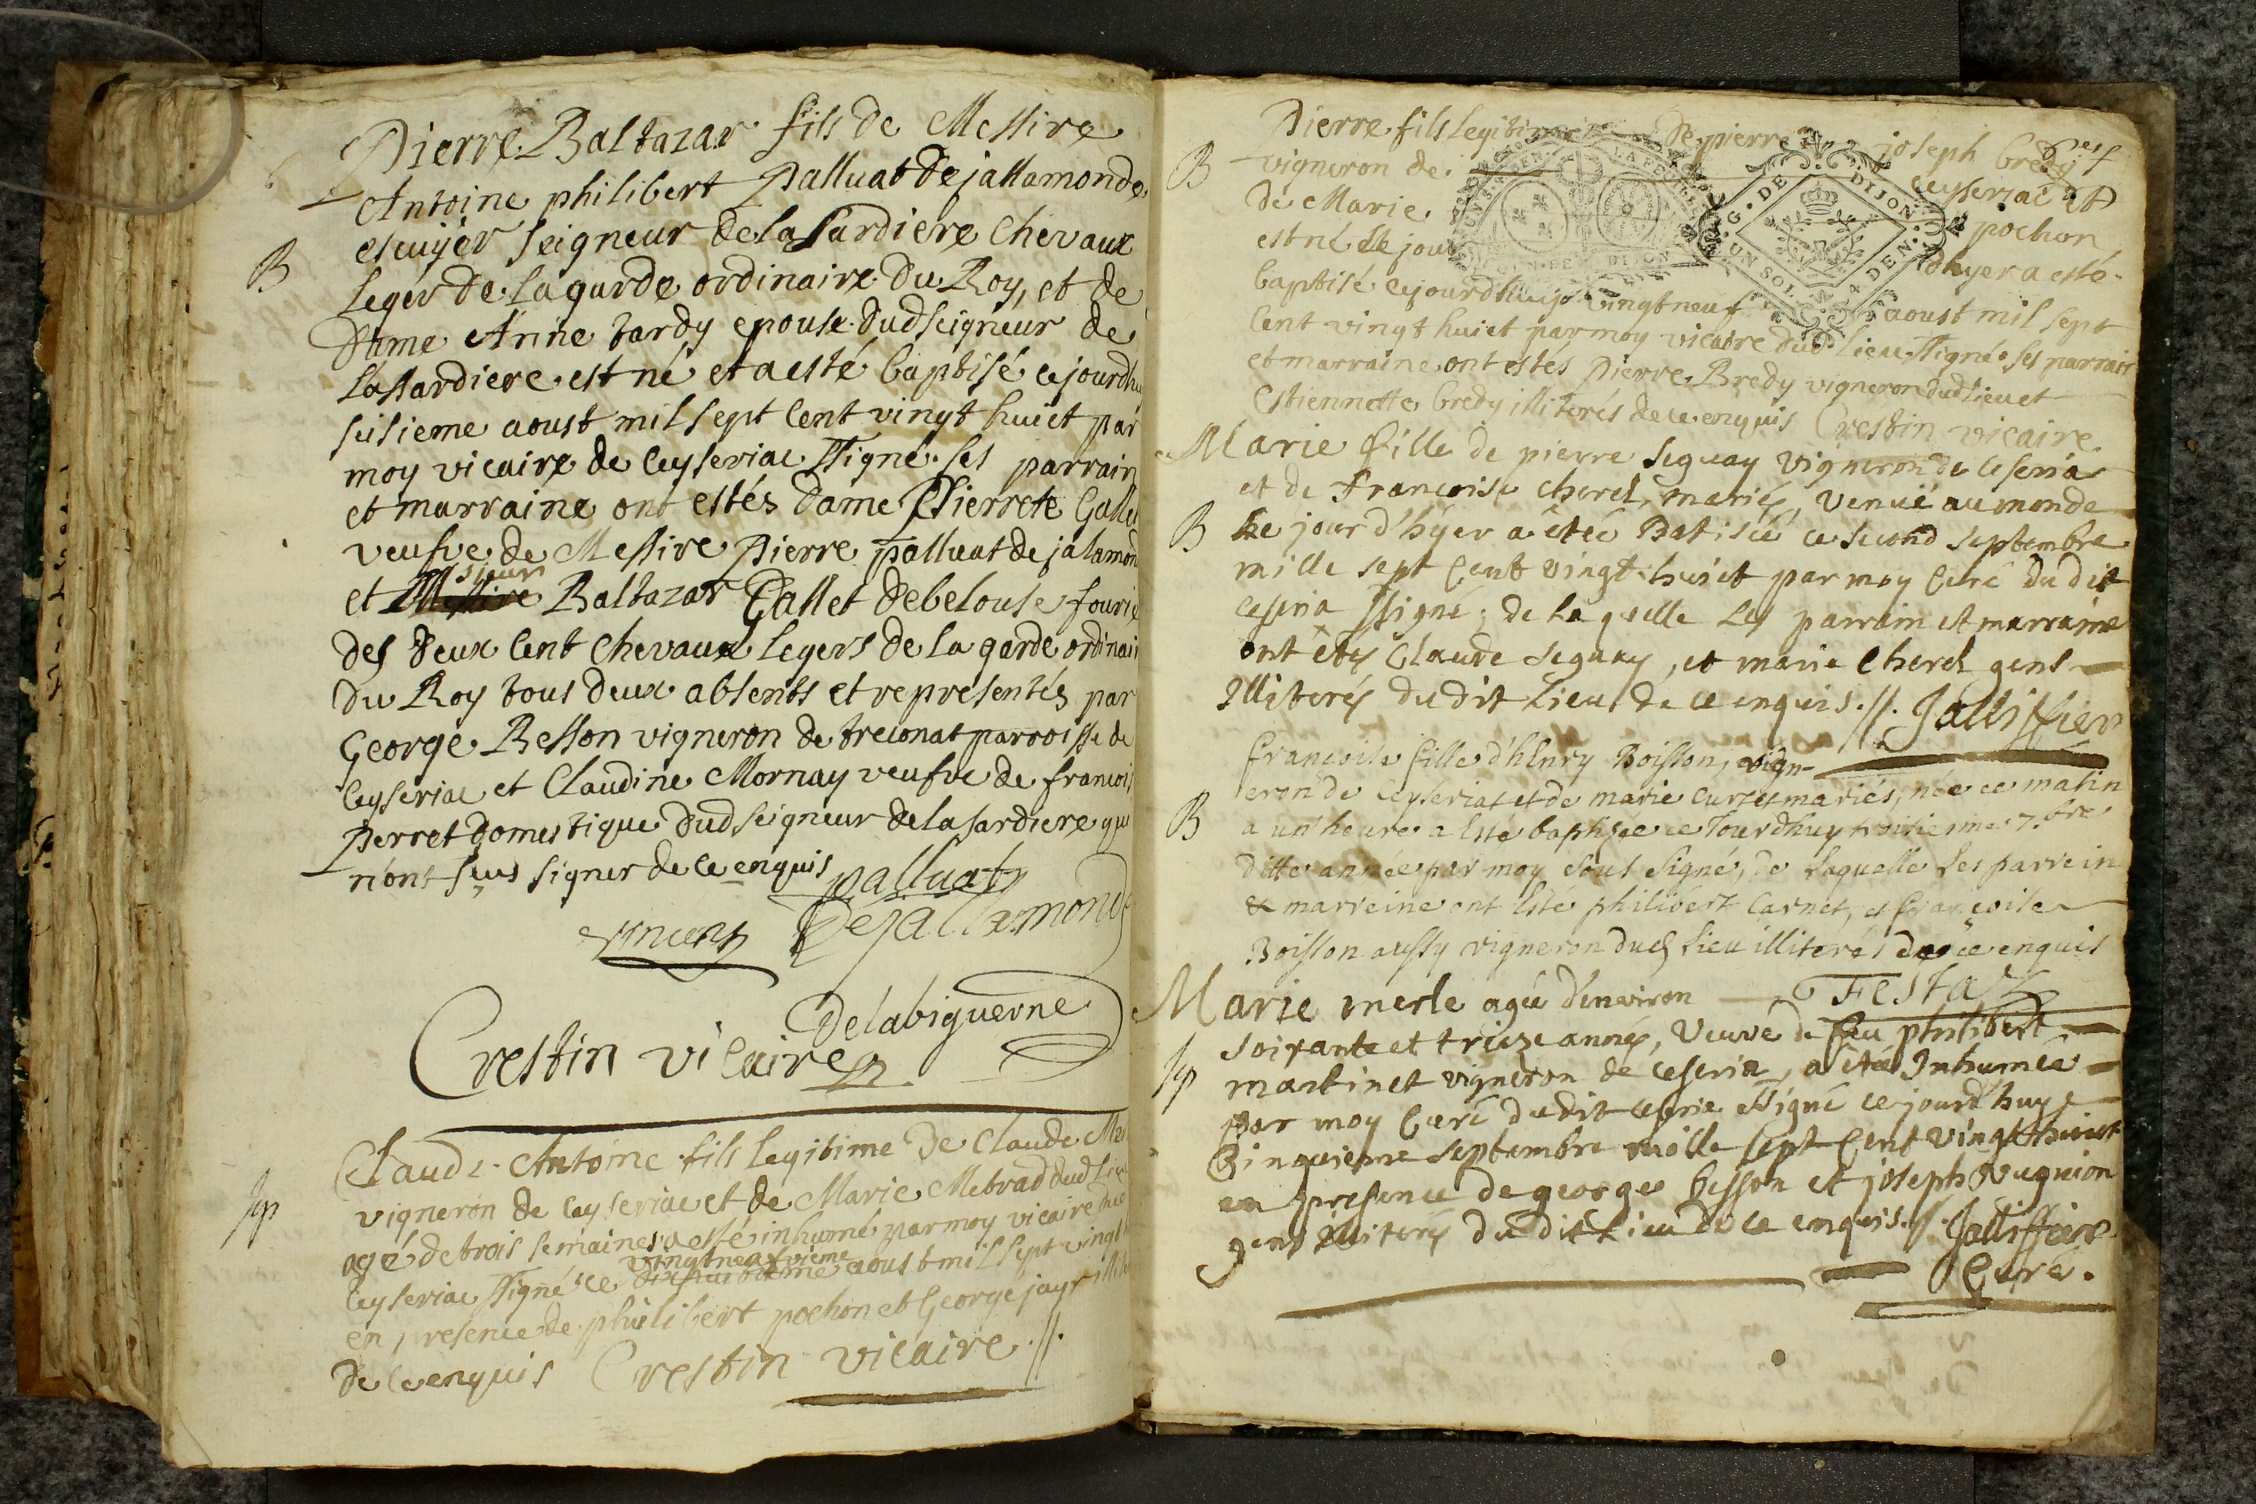 Pierre Baltazar fils de Messire
Antoine philibert Palluat de jallamonde
B
escuijér seigneur de la sardiere chevaux
leger de la garde ordinaire du Roy, et de
dame Anne tardy epouse dud seigneur de
lassardiere est né et a esté baptisé cejourdhu
sisieme aoust mil sept cent vingt huict par
moy vicaire de ceyseriac ssigné ses parrain
et marraine ont estés dame Pierrete Gallet
veufve de Messire Pierre palluat de jalamond
sieur
et Messire Baltazar Gallet debelouse fourie
des deux cent chevaux legers de la garde ordinai
du Roy tous deux absents et representés par
George Besson vigneron de treconat parroisse de
ceyseriac et Claudine Mornay veufve de francois
Perret domestique dud seigneur de la sardiere qui
n'ont sceus signer de ce enquis
palluat
Dejallamond
Delabiguerne
Crestin vicaire
Claude Antoine fils legitime de Claude
Sep
vigneron de ceyseriac et de Marie Mebrad dud lie
agé de trois semaines a esté inhumé par moy vicaire
vingtneufvieme
ceyseriac ssigné ce dixhuitieme aoust mil sept vingt
en presence de philibert pochon et George jayr
de ce enquis Crestin vicaire //.
Pierre fils legitime de pierre joseph bredy
B
vigneron de ceyseriac et
de Marie pochon
est né le jour dhyer a esté
baptisé cejourdhuy vingtneuf aoust mil sept
cent vingt huict par moy vicaire dud lieu ssigné ses parrain
et marraine ont estés Pierre Bredy vigneron dud lieu et
Estiennette bredy illiterés de ce enquis Crestin vicaire
Marie fille de pierre seguay vigneron de ceseria
et de Francoise cherel, mariés, venuë au monde
B
Le jour d'hÿer a étéé Batiséé ce second septembre
mille sept cent vingt huict par moy curé du dit
ceseria ssigné; de laquelle les parrain et marraine
ont étés Claude seguay, et marie cherel gens
Illiterés du dit Lieu de ce enquis. //. Jalliffier
francoise fille d'henry Boisson, vign-
eron de ceyseriat et de marie curtet mariés, née ce matin
B
a un'heure a esté baptisée ce Jourdhuy troisieme 7.bre
ditte année par moy sous signé, de laquelle les parrein
& marreine ont esté philibert Carnet, et francoise
Boisson aussy vigneron dud lieu illiterés de ce enquis
Festaz
Marie merle agée d'environ
soixante et treize années, Veuve de feu philibert
Sep
martinet vigneron de ceseria, a étéé Inhuméé
par moy Curé du dit ceseria ssigné ce jourd'huy
Cinquieme septembre mille sept Cent vingt huict
en presence de george besson et joseph Vugnion
gens Illiterés du dit Lieu de ce enquis. //. Jalliffier
Curé.
G. DE DIJON
UN SOL. 4 DEN.